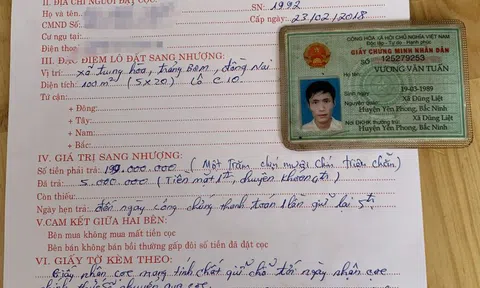 II. ĐỊA CHỈ NGƯỜI ĐẶT CỌC:
Họ và tên: SN: 1992
CMND Số: Cấp ngày 23/02/2018
Cư ngụ tại
Điện thoại
III. ĐẶC ĐIỂM LÔ ĐẤT SANG NHƯỢNG:
Vị trí: xã Trung hòa, Trảng Bom, đồng Nai
Diện tích: 100m² (5x20) Lô C10
Tứ cận:
+ Đông:
+ Tây:
+ Nam:
+ Bắc:
IV. GIÁ TRỊ SANG NHƯỢNG:
Số tiền phải trả: 199.000.000 (Một Trăm chín mươi chín triệu chẵn)
Đã trả: 5.000.000 (Tiền mặt 1tr, chuyển khoản 4tr)
Còn thiếu:
Ngày hẹn trả: đến ngày công chứng thanh toán giữ lại 5tr
V.CAM KẾT GIỮA HAI BÊN:
Bên mua không mua mất tiền cọc
Bên bán không bán bồi thường gấp đôi số tiền đã đặt cọc
VI. GIẤY TỜ KÈM THEO:
Giấy nhận cọc mang tính chất giữ chỗ tới ngày nhận cọc
CỘNG HÒA XÃ HỘI CHỦ NGHĨA VIỆT NAM
Độc lập - Tự do - Hạnh phúc
GIẤY CHỨNG MINH NHÂN DÂN
SỐ 125279253
VƯƠNG VĂN TUẤN
Sinh ngày 19-03-1989
Nguyên quán Xã Dũng Liệt
Huyện Yên Phong, Bắc Ninh
Nơi ĐKHK thường trú Xã Dũng Liệt
Huyện Yên Phong, Bắc Ninh